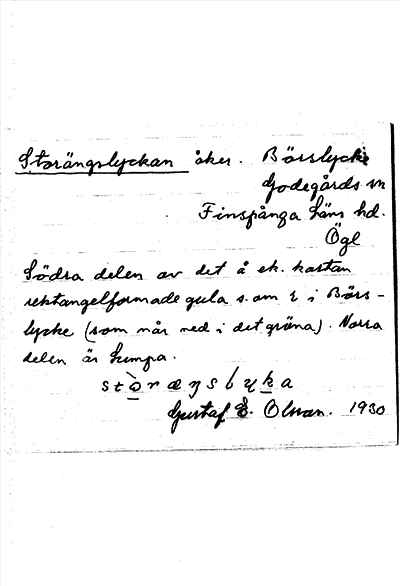 Storängslyckan åker. Börslycke
Godegårds sn
Finspånga läns hd.
Ögl
Södra delen av det å ek. kartan
rektangelformade gula s. om r i Börs-
lycke (som når ned i det gröna). Norra
delen är Lumpa.
Gustaf E. Olsson. 1930